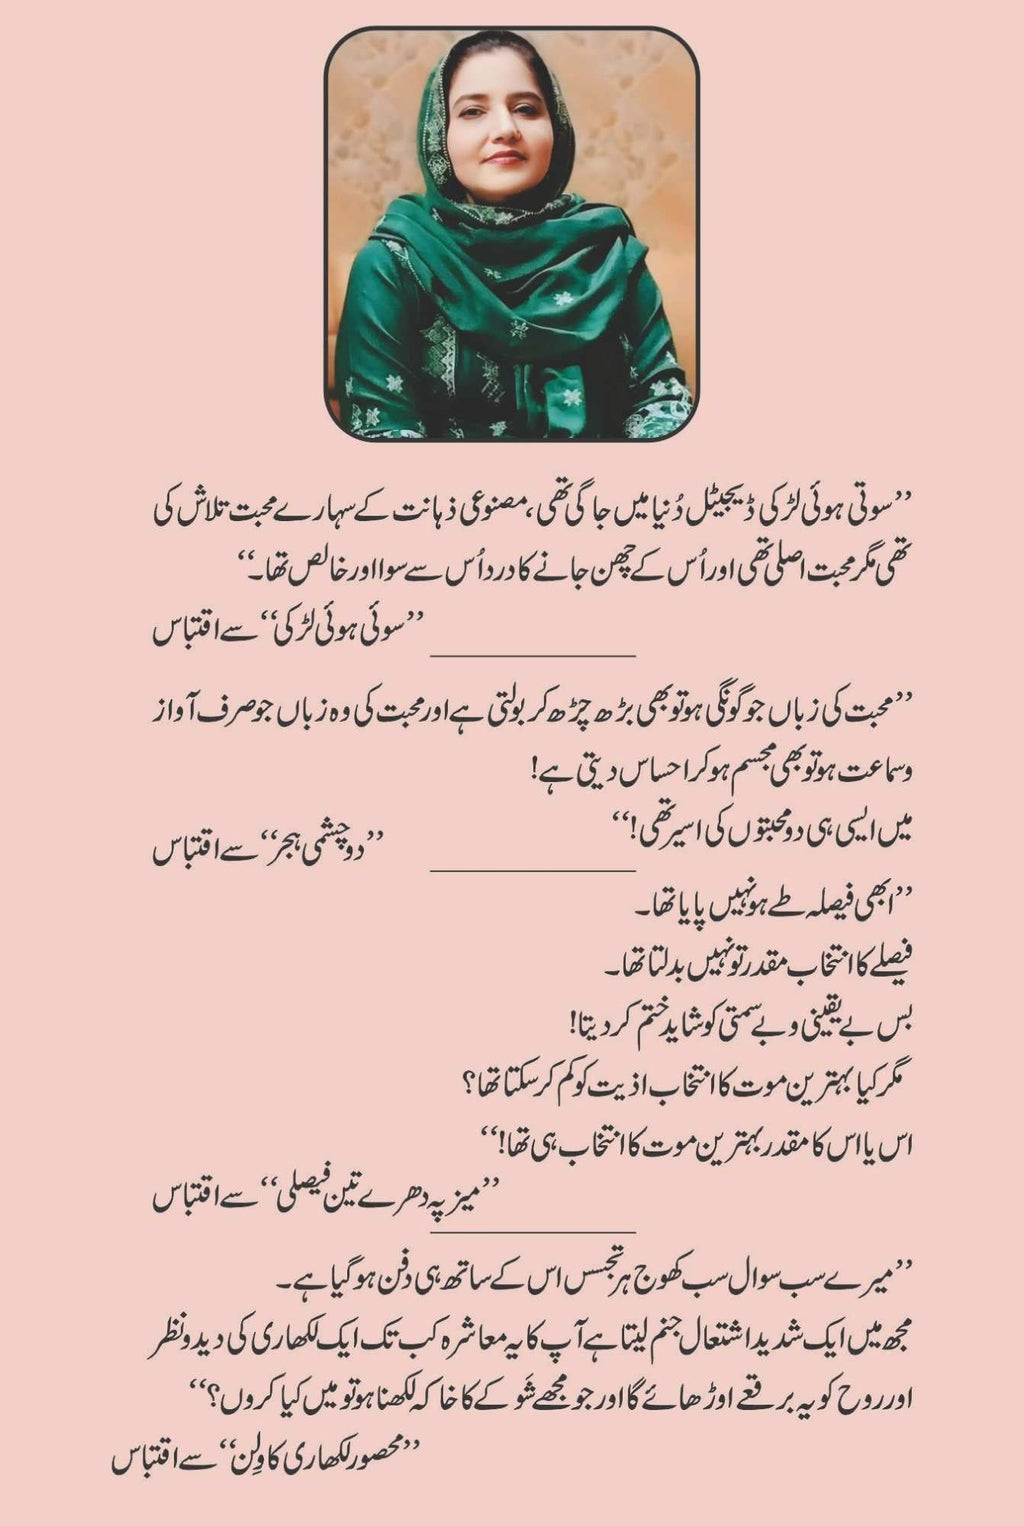 ”سوتی ہوئی لڑکی ڈیجیٹل دُنیا میں جاگی تھی، مصنوعی ذہانت کے سہارے محبت تلاش کی
تھی مگر محبت اصلی تھی اور اُس کے چھن جانے کا درد اُس سے سوا اور خالص تھا۔“
”سوئی ہوئی لڑکی“ سے اقتباس
”محبت کی زباں جو گونگی ہو تو بھی بڑھ چڑھ کر بولتی ہے اور محبت کی وہ زباں جو صرف آواز
و سماعت ہو تو بھی مجسم ہو کر احساس دیتی ہے!
میں ایسی ہی دو محبتوں کی اسیر تھی!“
”دو چشمی ہجر“ سے اقتباس
”ابھی فیصلہ طے ہو نہیں پایا تھا۔
فیصلے کا انتخاب مقدر تو نہیں بدلتا تھا۔
بس بے یقینی و بے سمتی کو شاید ختم کر دیتا!
مگر کیا بہترین موت کا انتخاب اذیت کو کم کر سکتا تھا؟
اس یا اس کا مقدر بہترین موت کا انتخاب ہی تھا!“
”میز پہ دھرے تین فیصلی“ سے اقتباس
”میرے سب سوال سب کھوج ہر تجسس اس کے ساتھ ہی دفن ہو گیا ہے۔
مجھ میں ایک شدید اشتعال جنم لیتا ہے آپ کا یہ معاشرہ کب تک ایک لکھاری کی دید و نظر
اور روح کو یہ برقعے اوڑھائے گا اور جو مجھے شَو کے کا خاکہ لکھنا ہو تو میں کیا کروں؟“
”محصور لکھاری کا وِلن“ سے اقتباس